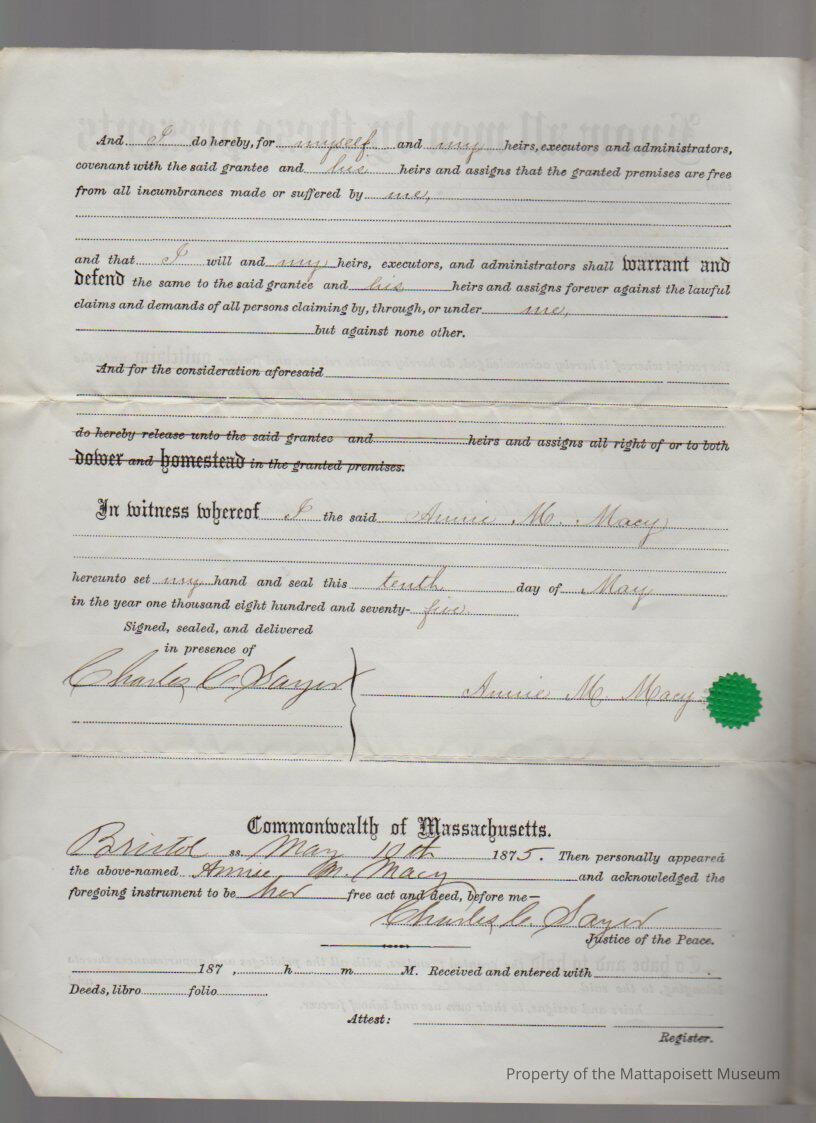 And I do hereby, for myself and my heirs, executors and administrators,
covenant with the said grantee and his heirs and assigns that the granted premises are free
from all incumbrances made or suffered by me,
and that I will and my heirs, executors, and administrators shall warrant and
defend the same to the said grantee and his heirs and assigns forever against the lawful
claims and demands of all persons claiming by, through, or under me,
but against none other.
And for the consideration aforesaid
do hereby release unto the said grantee and heirs and assigns all right of or to both
dower and homestead in the granted premises.
In witness whereof I the said Annie M. Macy
hereunto set my hand and seal this tenth day of May
in the year one thousand eight hundred and seventy-five.
Signed, sealed, and delivered
in presence of
Charles C. Sayer
Annie M Macy
Commonwealth of Massachusetts.
Bristol ss. May 10th 1875. Then personally appeared
the above-named Annie M. Macy and acknowledged the
foregoing instrument to be her free act and deed, before me—
Charles C. Sayer
Justice of the Peace.
187 , h. m. M. Received and entered with
Deeds, libro folio
Attest:
Register.
Property of the Mattapoisett Museum